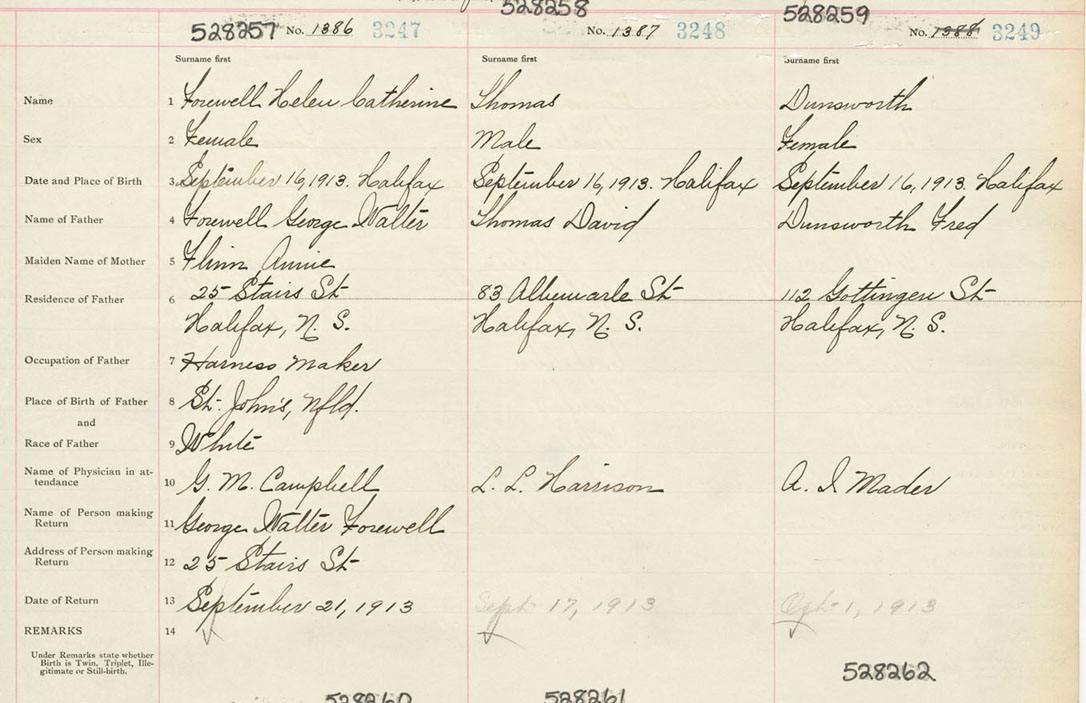 528257 No. 1386 3247
528258
No. 1387 3248
528259
No. 1388 3249
Surname first Surname first Surname first
Name 1 Forewell Helen Catherine Thomas Dunsworth
Sex 2 Female Male Female
Date and Place of Birth 3 September 16, 1913. Halifax September 16, 1913. Halifax September 16, 1913. Halifax
Name of Father 4 Forewell George Walter Thomas David Dunsworth Fred
Maiden Name of Mother 5 Flinn Annie
Residence of Father 6 25 Stairs St 83 Albemarle St 112 Gottingen St
Halifax, N. S. Halifax, N. S. Halifax, N. S.
Occupation of Father 7 Harness maker
Place of Birth of Father 8 St. John's, Nfld.
and
Race of Father 9 White
Name of Physician in at-
tendance 10 G. M. Campbell L. L. Harrison A. I Mader
Name of Person making
Return 11 George Walter Forewell
Address of Person making
Return 12 25 Stairs St
Date of Return 13 September 21, 1913 Sept 17, 1913 Oct 1, 1913
REMARKS 14
Under Remarks state whether
Birth is Twin, Triplet, Ille-
gitimate or Still-birth.
528262
528260 528261